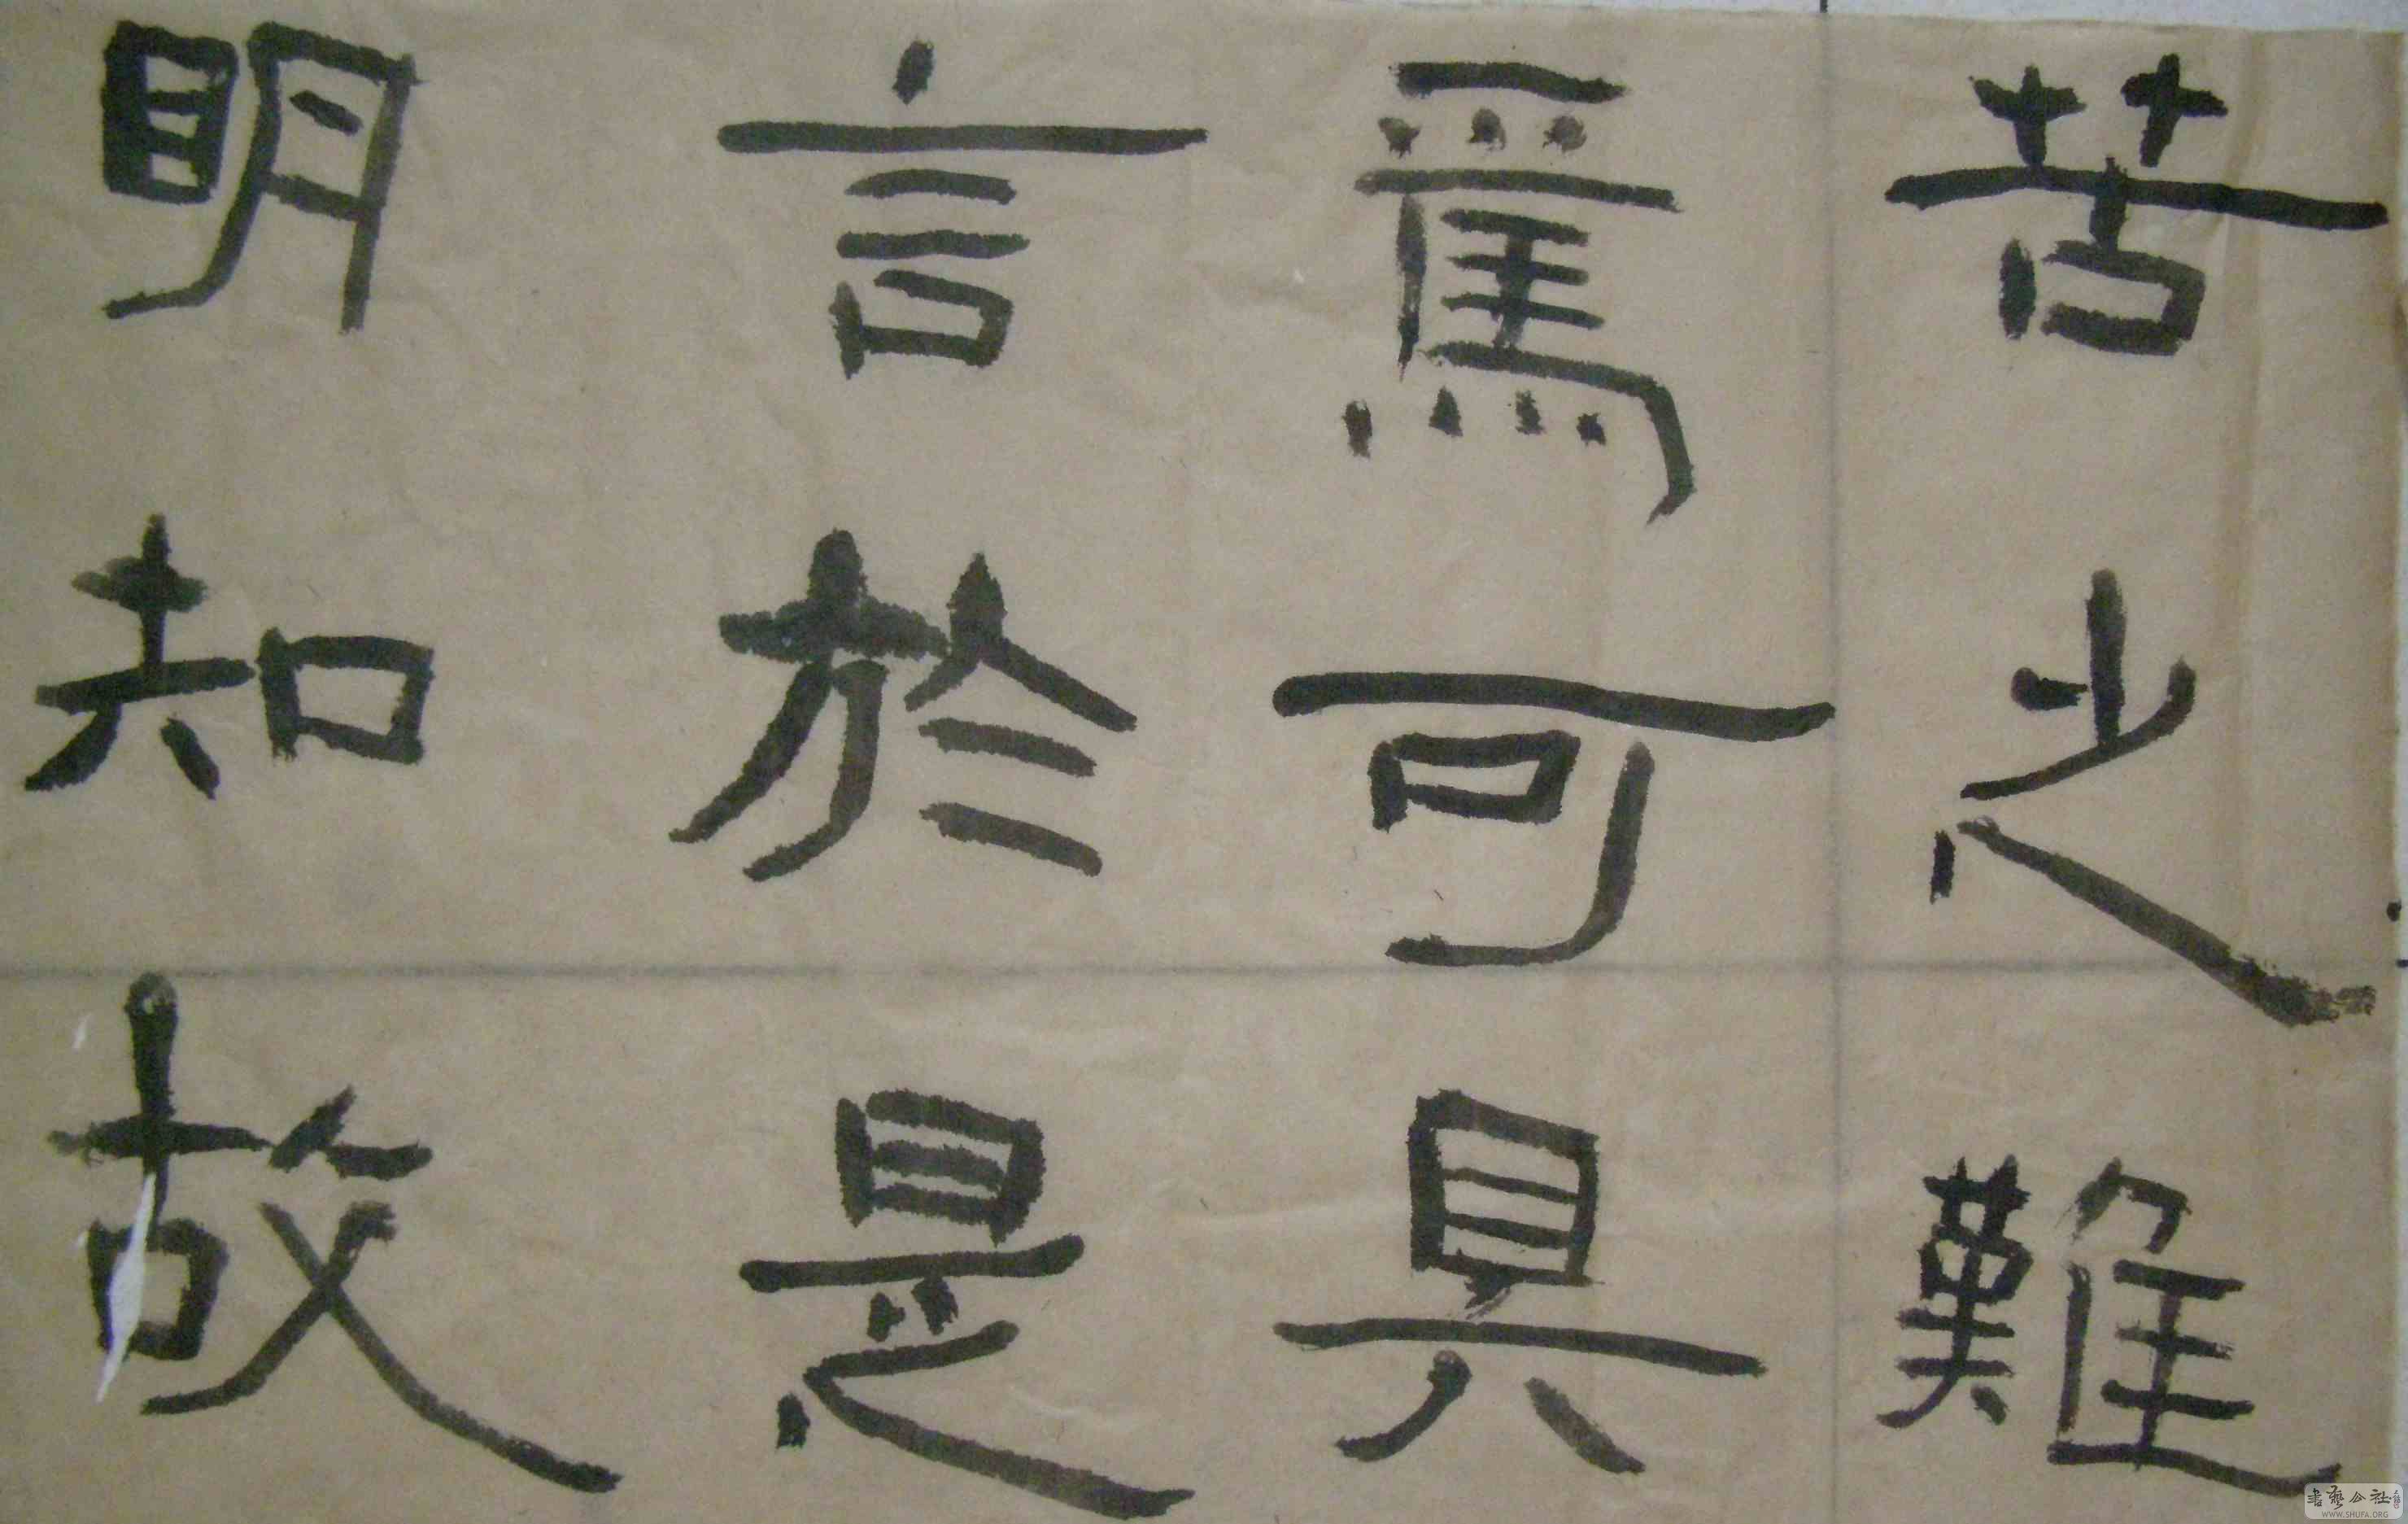 苦之難
焉可具
言於是
明知故
書藝公社
WWW.SHUFA.ORG